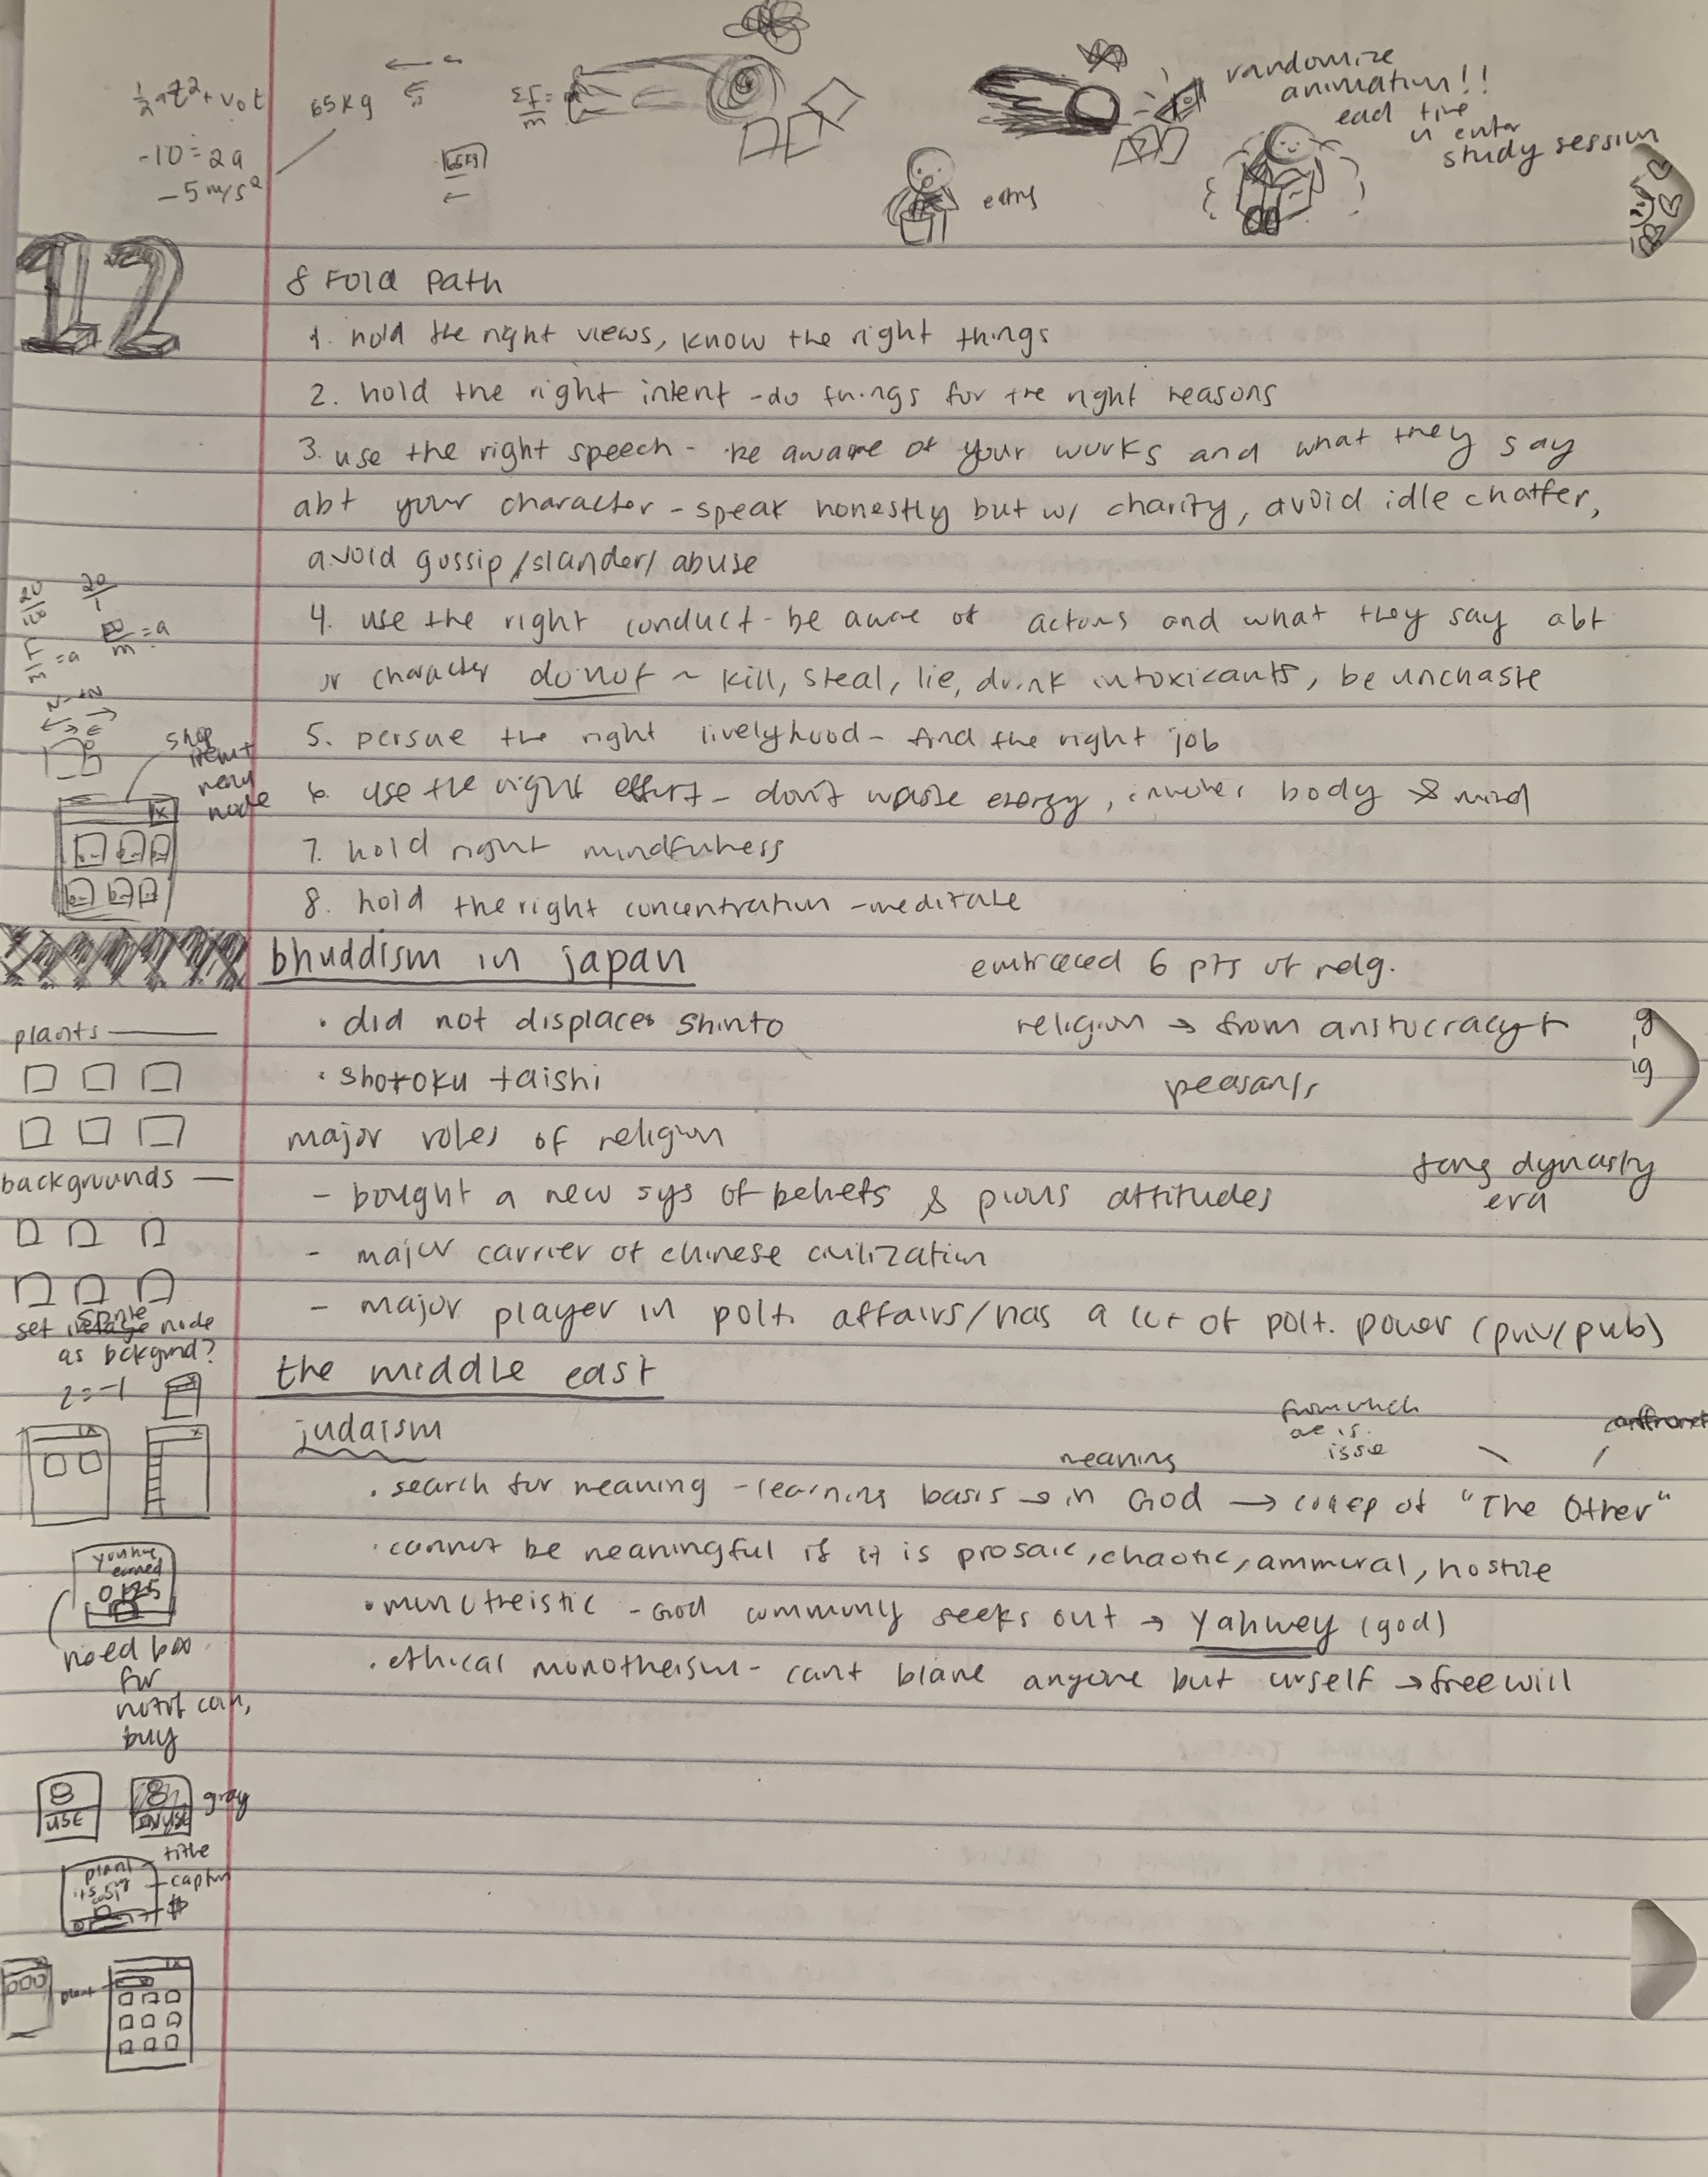 ½at² + v₀t
65kg
ΣF = a
m
-10 = 2a
-5 m/s²
65kg
randomize
animation!!
ead time
u enter
study session
12
8 Fold Path
1. hold the right views, know the right things
2. hold the right intent - do things for the right reasons
3. use the right speech - be aware of your works and what they say
abt your character - speak honestly but w/ charity, avoid idle chatter,
avoid gossip/slander/abuse
4. use the right conduct - be aware of actions and what they say abt
ur character do not ~ kill, steal, lie, drink intoxicants, be unchaste
5. persue the right livelyhood - find the right job
6. use the right effort - don't waste energy, involves body & mind
7. hold right mindfulness
8. hold the right concentration - meditate
20
20
1
m = a
F = a
m
shop
menu
node
bhuddism in japan
embraced 6 pts of relg.
• did not displaces Shinto
religion → from aristocracy +
peasants
• shotoku taishi
major roles of religion
tang dynasty
era
- bought a new sys of beliefs & pious attitudes
- major carrier of chinese civilization
- major player in polt. affairs/has a lot of polt. power (priv/pub)
plants
backgrounds
set sprite node
as bckgrnd?
z=-1
the middle east
judaism
from which
issue
meaning
• search for meaning - learning basis → in God → concep of "The Other"
• cannot be meaningful if it is prosaic, chaotic, ammoral, hostile
• monotheistic - God commonly seeks out → Yahwey (god)
• ethical monotheism - cant blame anyone but urself → free will
you have
earned
need box
for
not coin,
buy
USE
IN USE
gray
plant
title
caption
$
plant